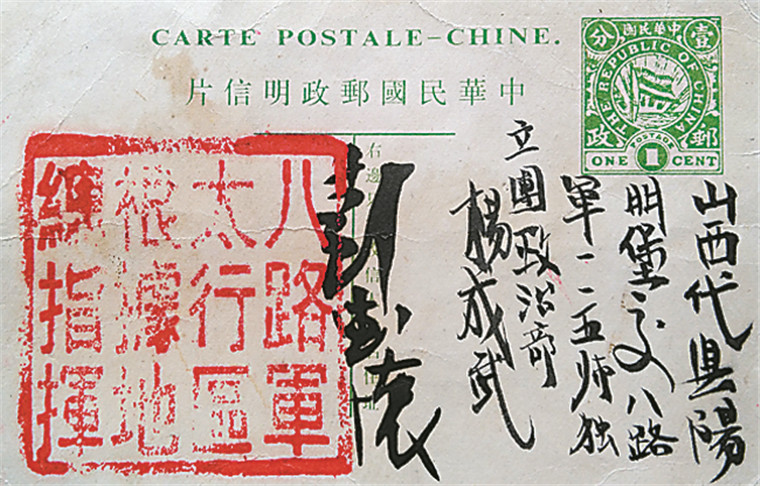 CARTE POSTALE–CHINE.
中華民國郵政明信片
中華民國
壹分
THE REPUBLIC OF CHINA
郵政
POSTAGE
ONE 1 CENT
山西代县陽
明堡交八路
軍一一五师独
立團政治部
楊成武
右邊
信
彭德怀
八路軍
太行區
根據地
總指揮